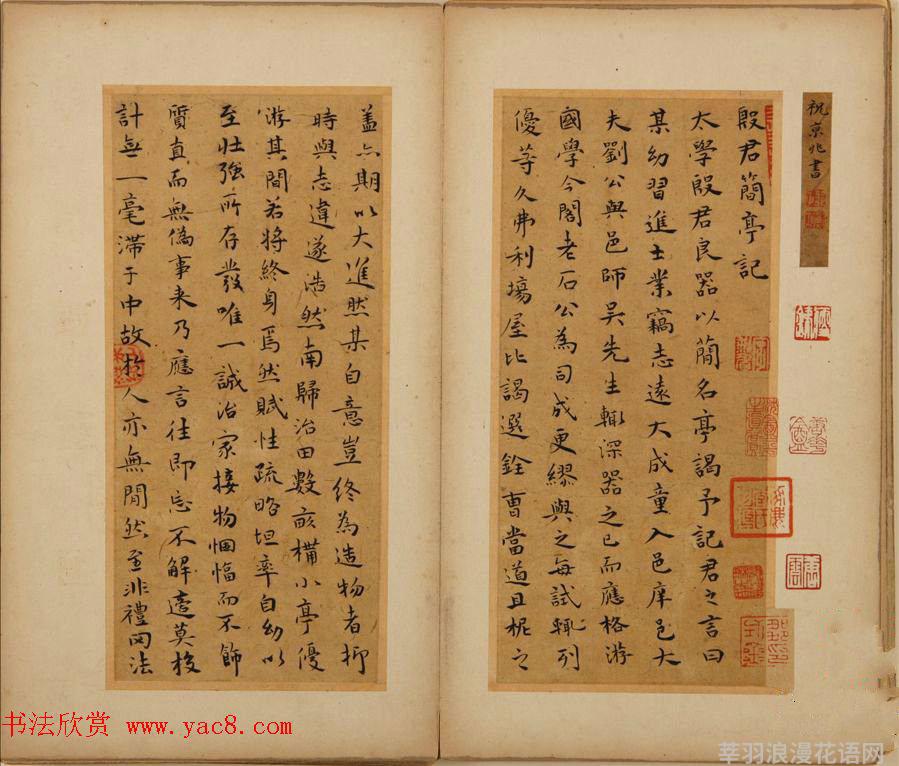 祝京兆書
殷君簡亭記
太學殷君民器以簡名亭謁予記君之言曰
某幼習進士業竊志遠大成童入邑庠邑大
夫劉公與邑師吳先生輒深器之已而應格游
國學今閣老石公為司成更繆與之每試輒列
優等久弗利場屋比謁選銓曹當道且柅之
蓋亦期以大進然某自意豈終為造物者抑
時與志違遂浩然南歸治田數畝構小亭優
游其間若將終身焉然賦性疏略坦率自幼以
至壯強所存發唯一誠治家接物悃愊而不飾
質直而無偽事来乃應言往即忘不解逺莫校
計無一毫滯于中故於人亦無間然至非禮罔法
书法欣赏 www.yac8.com
莘羽浪漫花语网